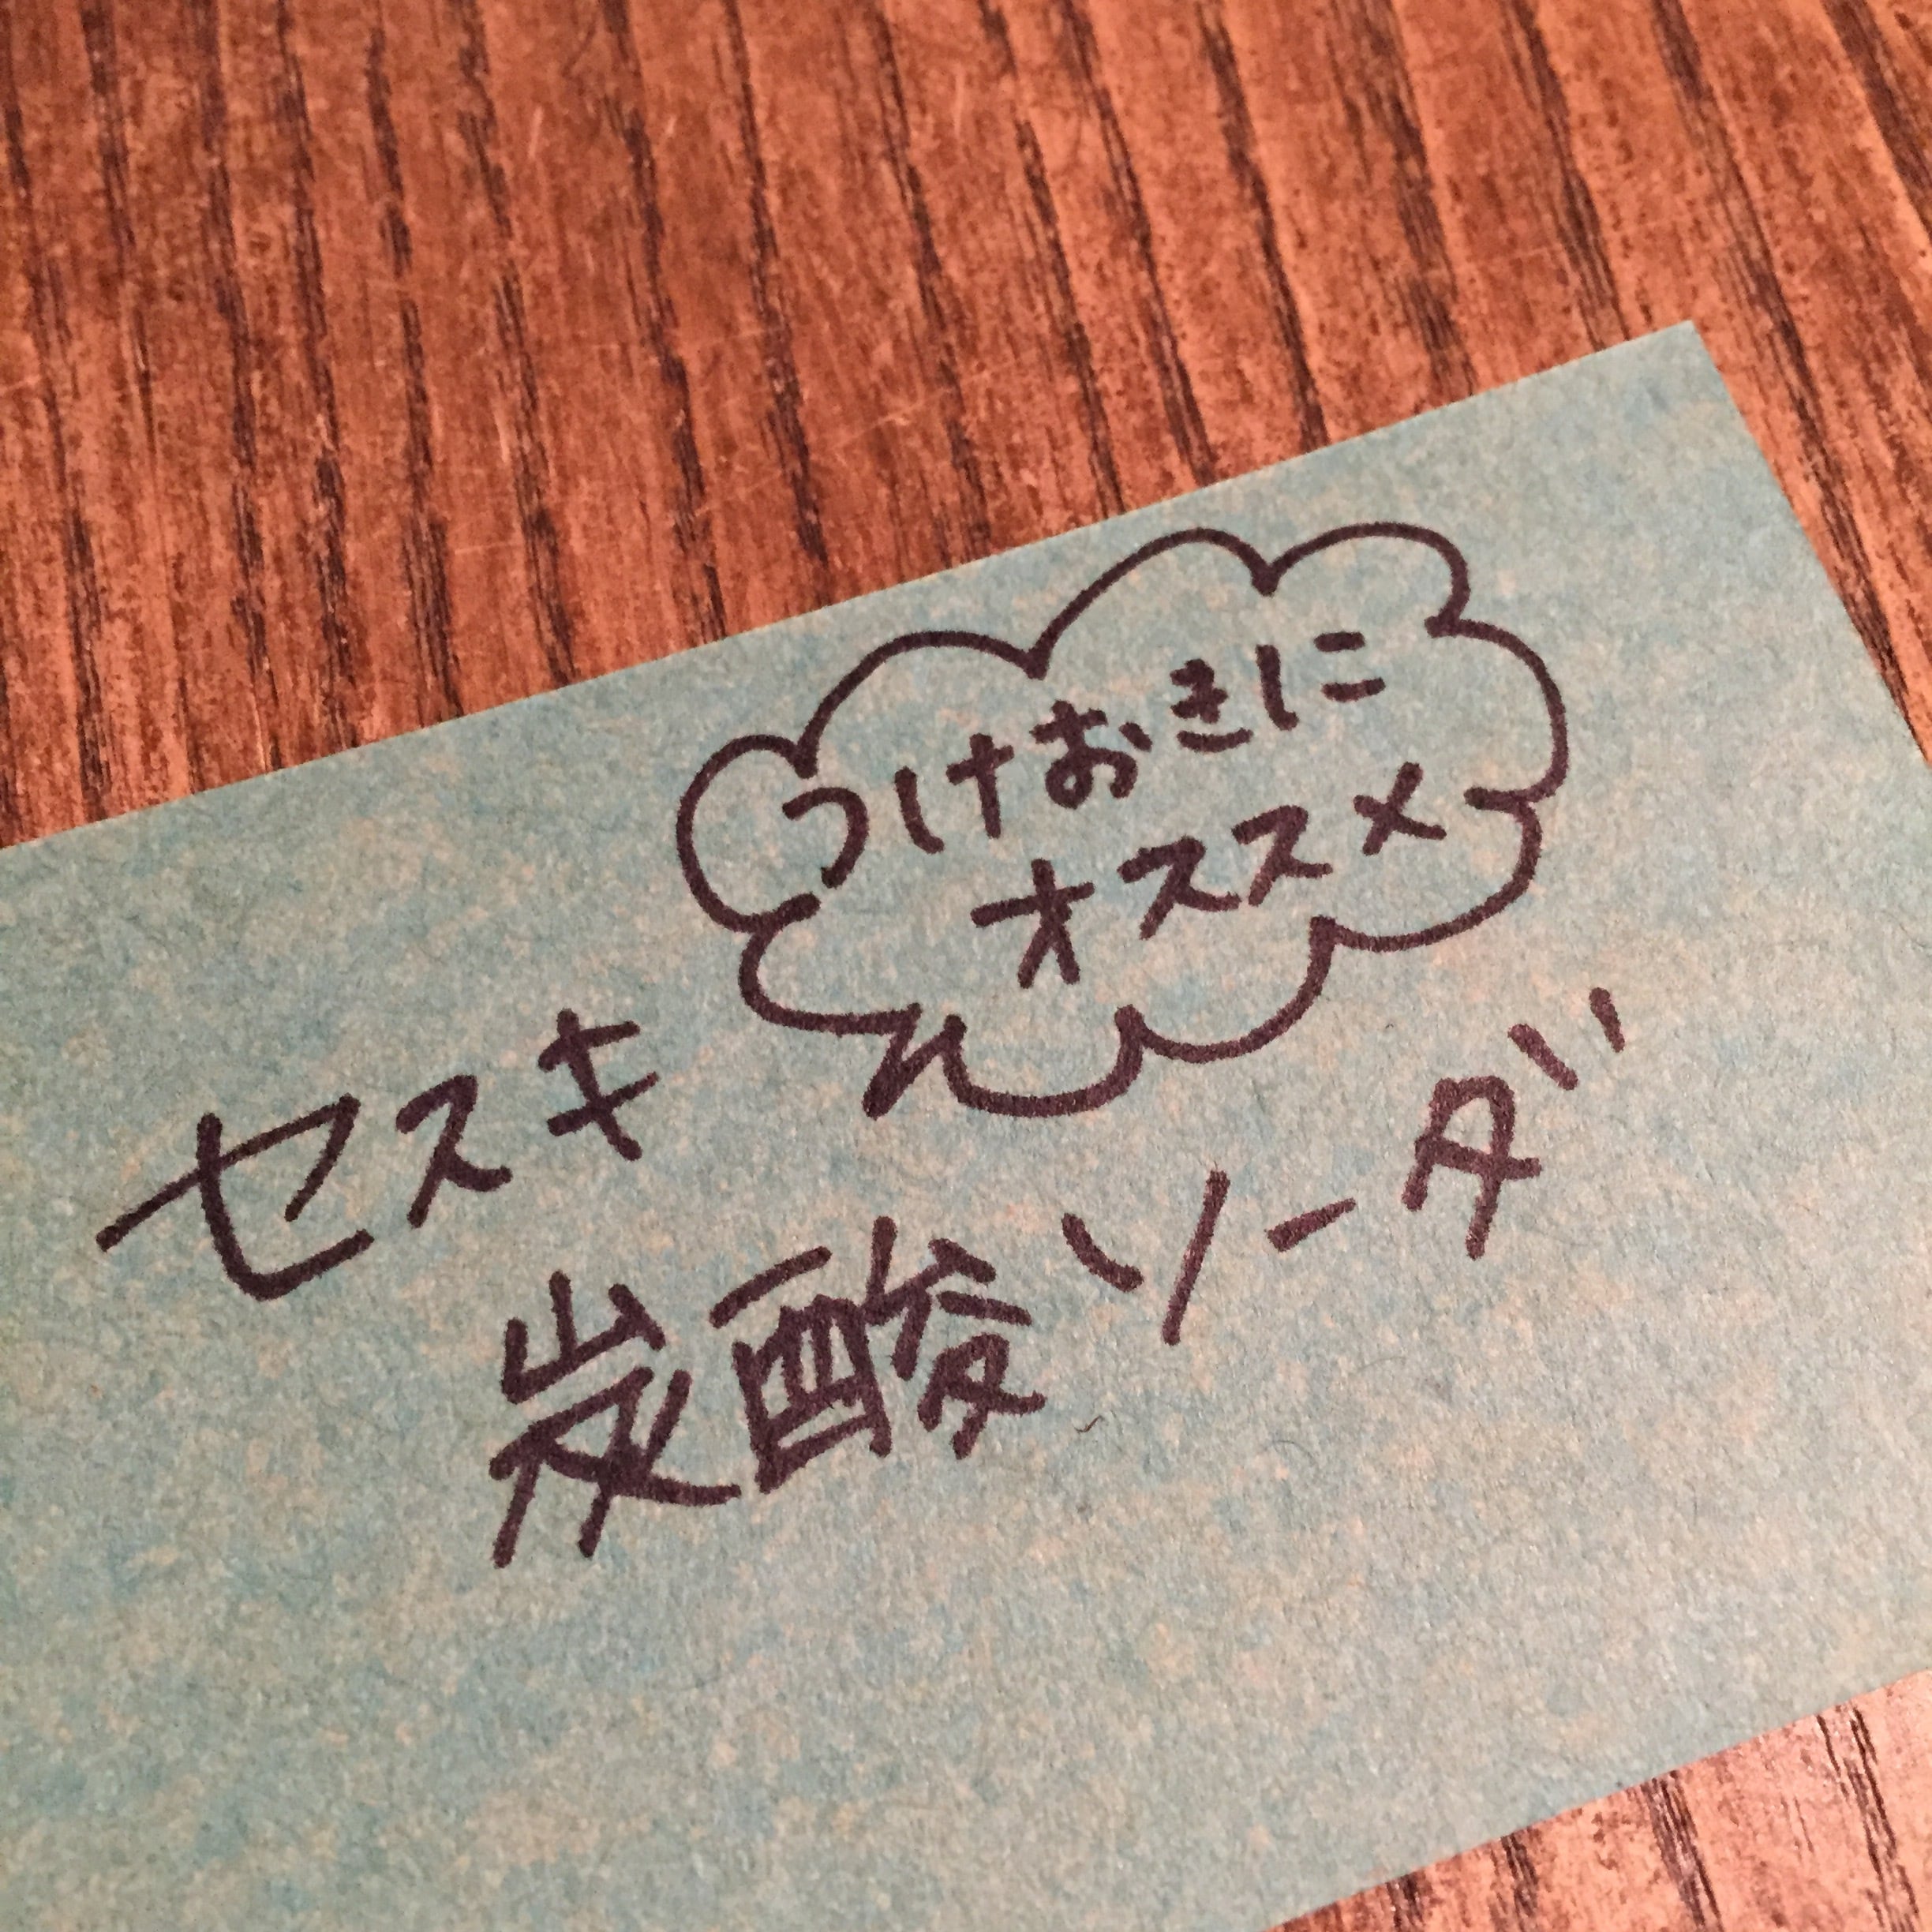 つけおきに
オススメ
セスキ
炭酸ソーダ